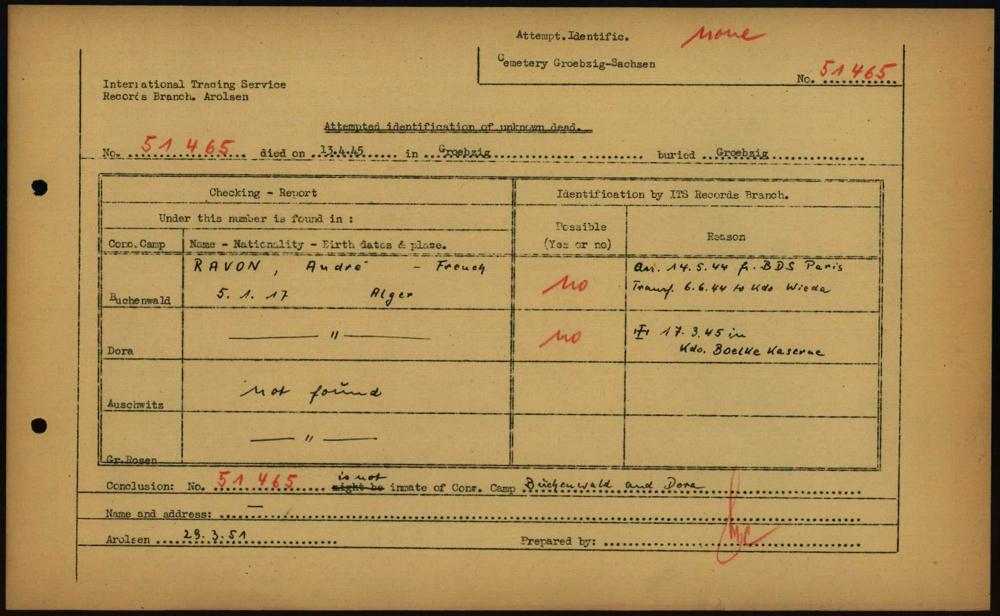 Attempt.Identific. none
Cemetery Groebzig-Sachsen
No. 51465
International Tracing Service
Records Branch. Arolsen
Attempted identification of unknown dead.
No. 51 465 died on 13.4.45 in Groebzig buried Groebzig
Checking - Report
Identification by ITS Records Branch.
Under this number is found in :
Possible
(Yes or no)
Reason
Conc. Camp
Name - Nationality - Birth dates & place.
Buchenwald
RAVON, André - French
5. 1. 17 Alger
no
arr. 14.5.44 fr. BDS Paris
Transf. 6.6.44 to Kdo Wieda
Dora
— " —
no
17.3.45 in
Kdo. Boelke Kaserne
Auschwitz
not found
Gr.Rosen
— " —
Conclusion: No. 51 465 is not might be inmate of Conc. Camp Buchenwald and Dora
Name and address: —
Arolsen 29.3.51
Prepared by: